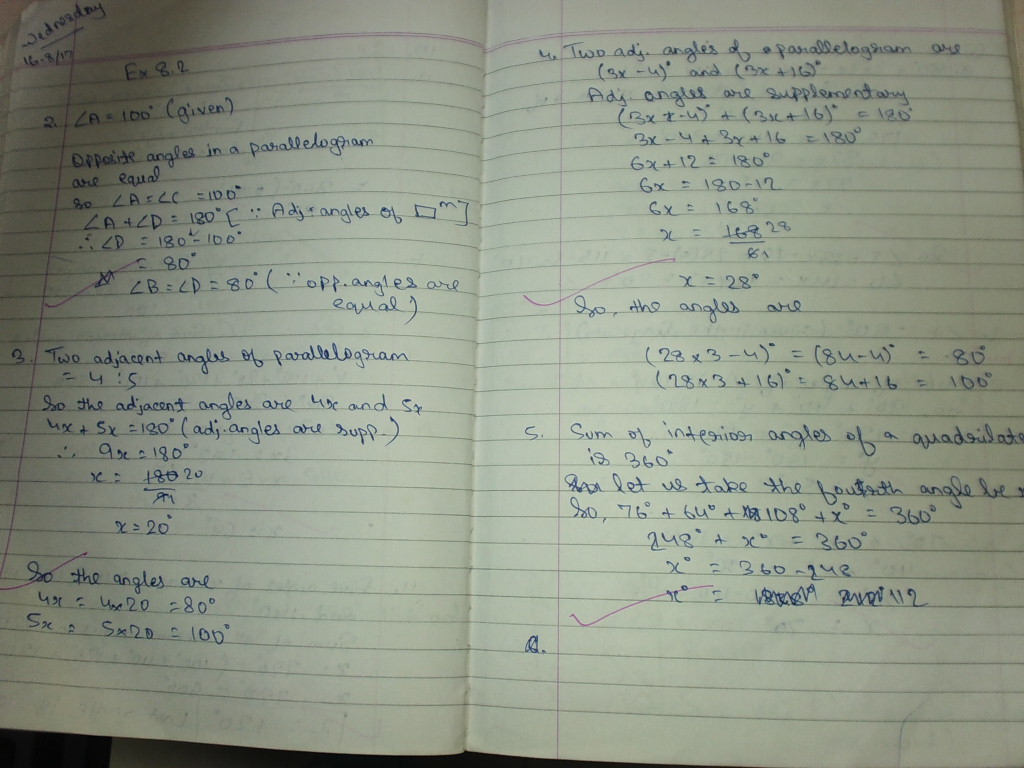 Wednesday
16.8/17
Ex 8.2
2. ∠A = 100° (given)
Opposite angles in a parallelogram
are equal
So ∠A = ∠C = 100°
∠A + ∠D = 180° [∵ Adj. angles of ▭m]
∴ ∠D = 180° - 100°
= 80°
∠B = ∠D = 80° (∵ opp. angles are
equal)
3. Two adjacent angles of parallelogram
= 4 : 5
So the adjacent angles are 4x and 5x
4x + 5x = 180° (adj. angles are supp.)
∴ 9x = 180°
x = 180 20
91
x = 20°
So the angles are
4x = 4x20 = 80°
5x = 5x20 = 100°
4. Two adj. angles of a parallelogram are
(3x - 4)° and (3x + 16)°
Adj. angles are supplementary
(3x - 4)° + (3x + 16)° = 180°
3x - 4 + 3x + 16 = 180°
6x + 12 = 180°
6x = 180 - 12
6x = 168°
x = 168 28
61
x = 28°
So, the angles are
(28 x 3 - 4)° = (84 - 4)° = 80°
(28x3 + 16)° = 84 + 16 = 100°
5. Sum of interior angles of a quadrilate
is 360°
let us take the fourth angle be
So, 76° + 64° + 108° + x° = 360°
248° + x° = 360°
x° = 360 - 248
x° = 112
6.